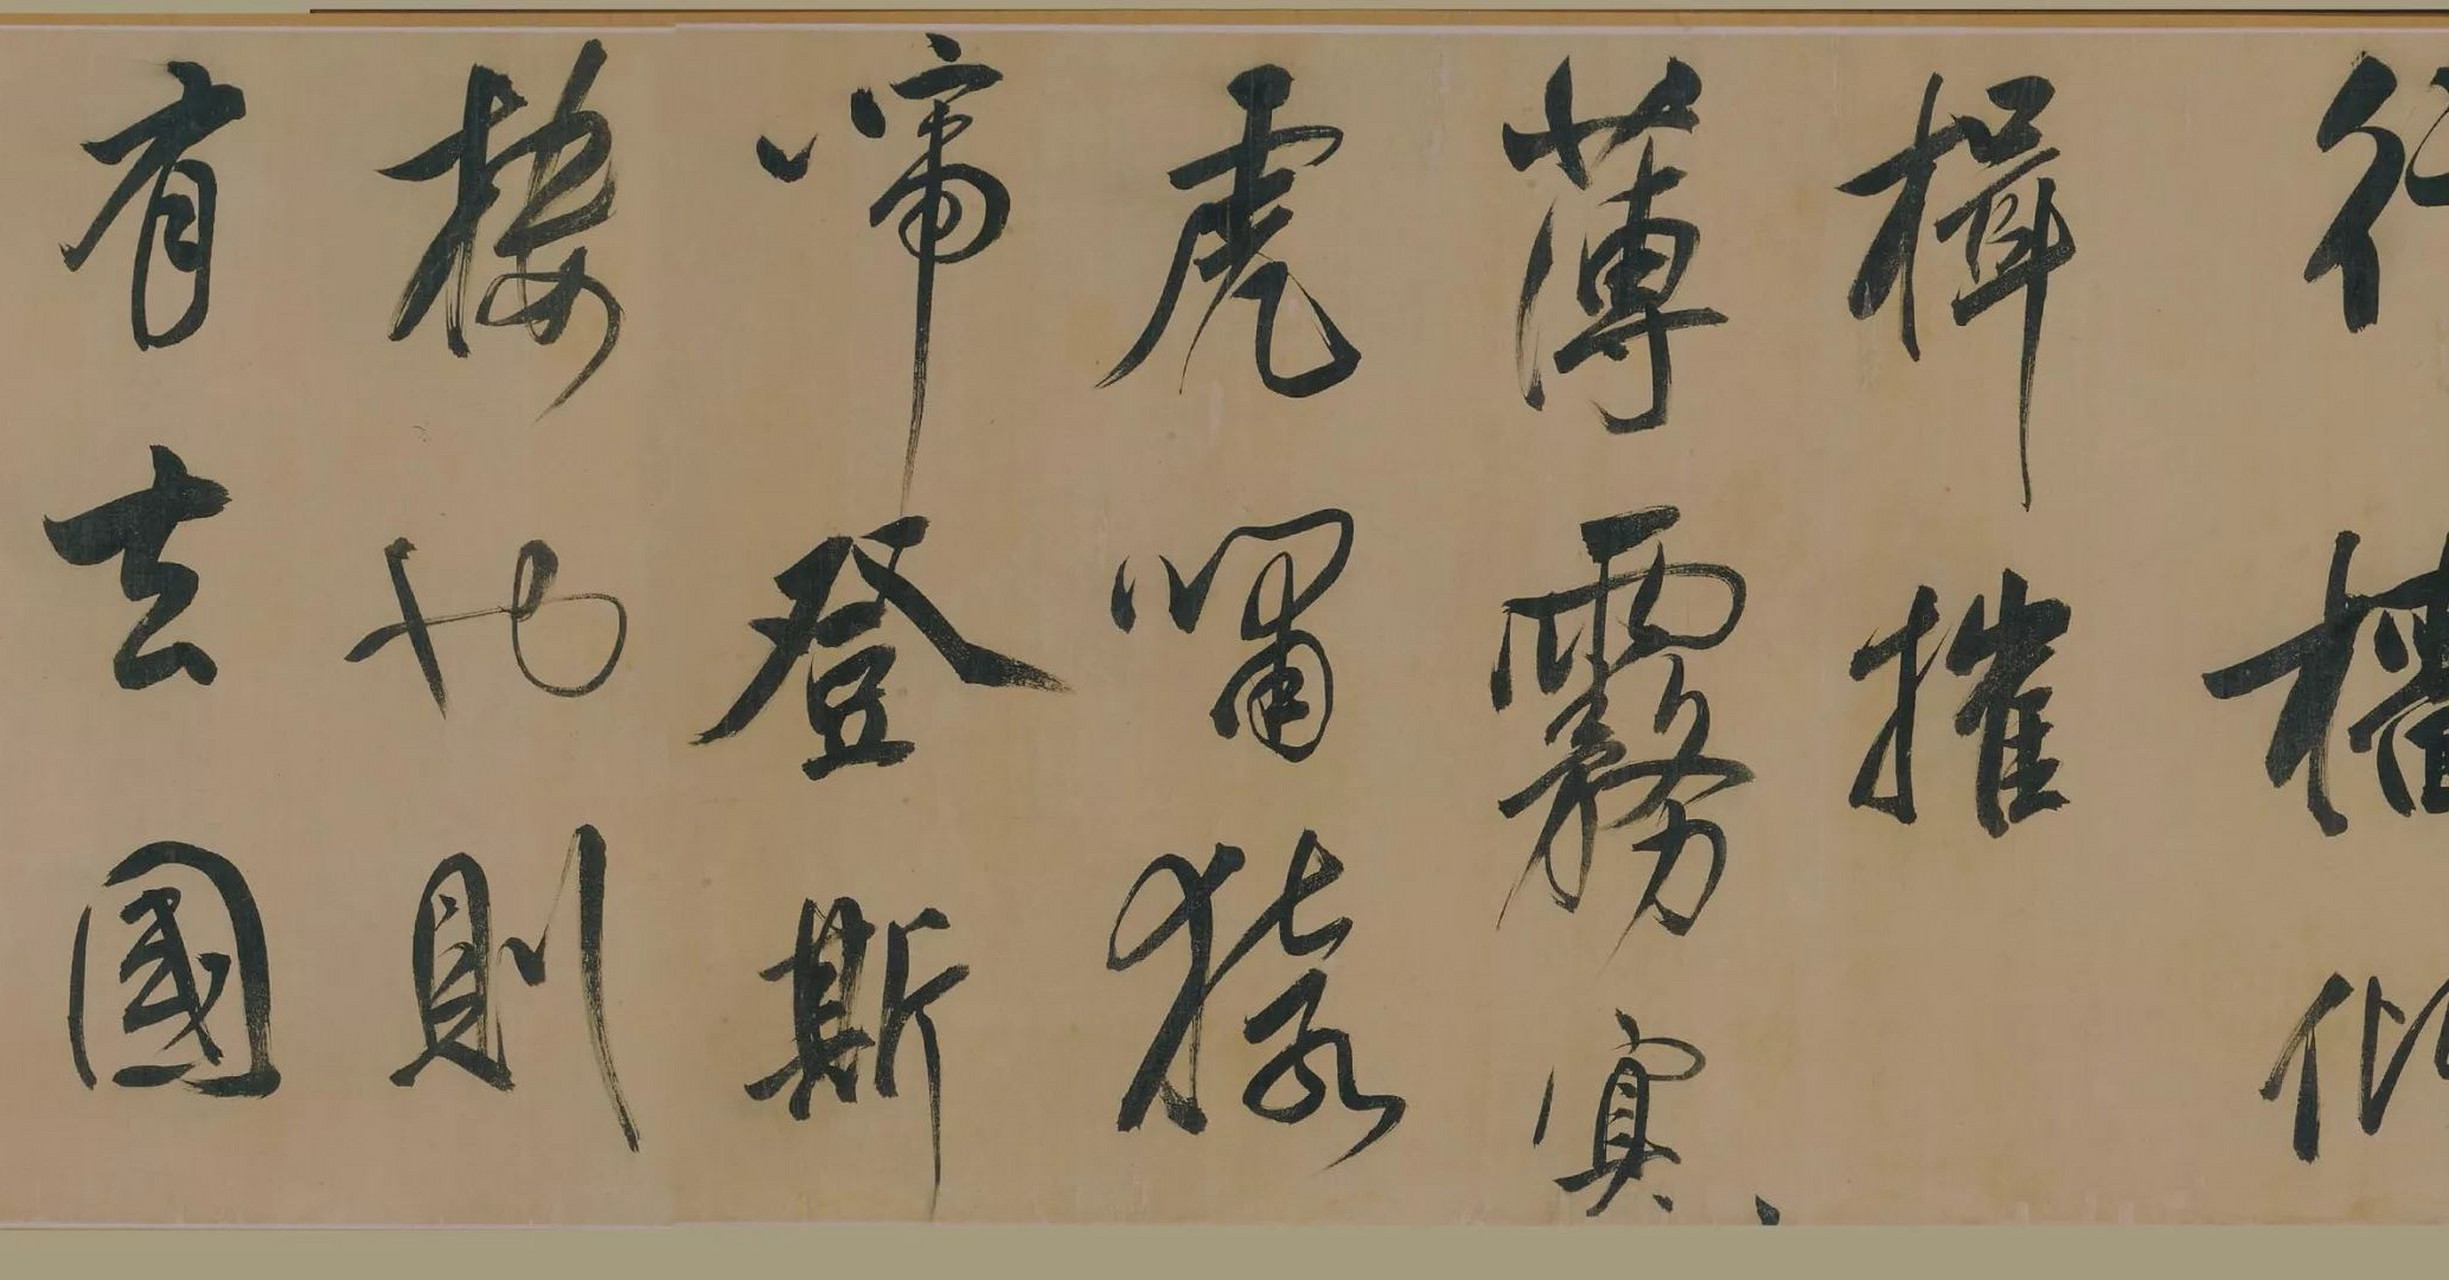 行檣傾
楫摧
薄霧冥、
虎嘯猿
啼登斯
樓也則
有去國